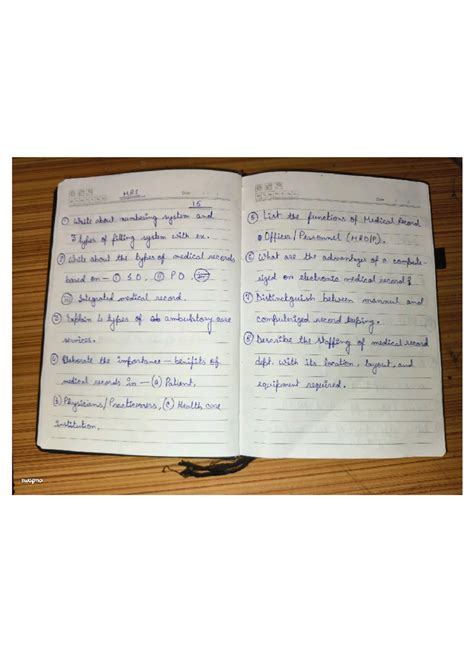 MRS
Date
15
① Write about numbering system and
3 types of filling system with ex.
② Write about the types of medical records
based on — ① S.O. ⑪ P.O.
⑪ Integrated medical record.
③ Explain is types of ambulatory care
services.
④ Elaborate the importance — benifits of
medical records in — (a) Patient,
(b) Physicians/Practicioners, (c) Health care
Institution.
Date
⑤ List the functions of Medical Record
Officer/Personnel (MRO/P).
⑥ What are the advantages of a compute-
sized on electronic medical record?
⑦ Distinctguish between mannual and
computerized record keeping.
⑧ Describe the staffing of medical record
dept. with its location, layout, and
equipment required.